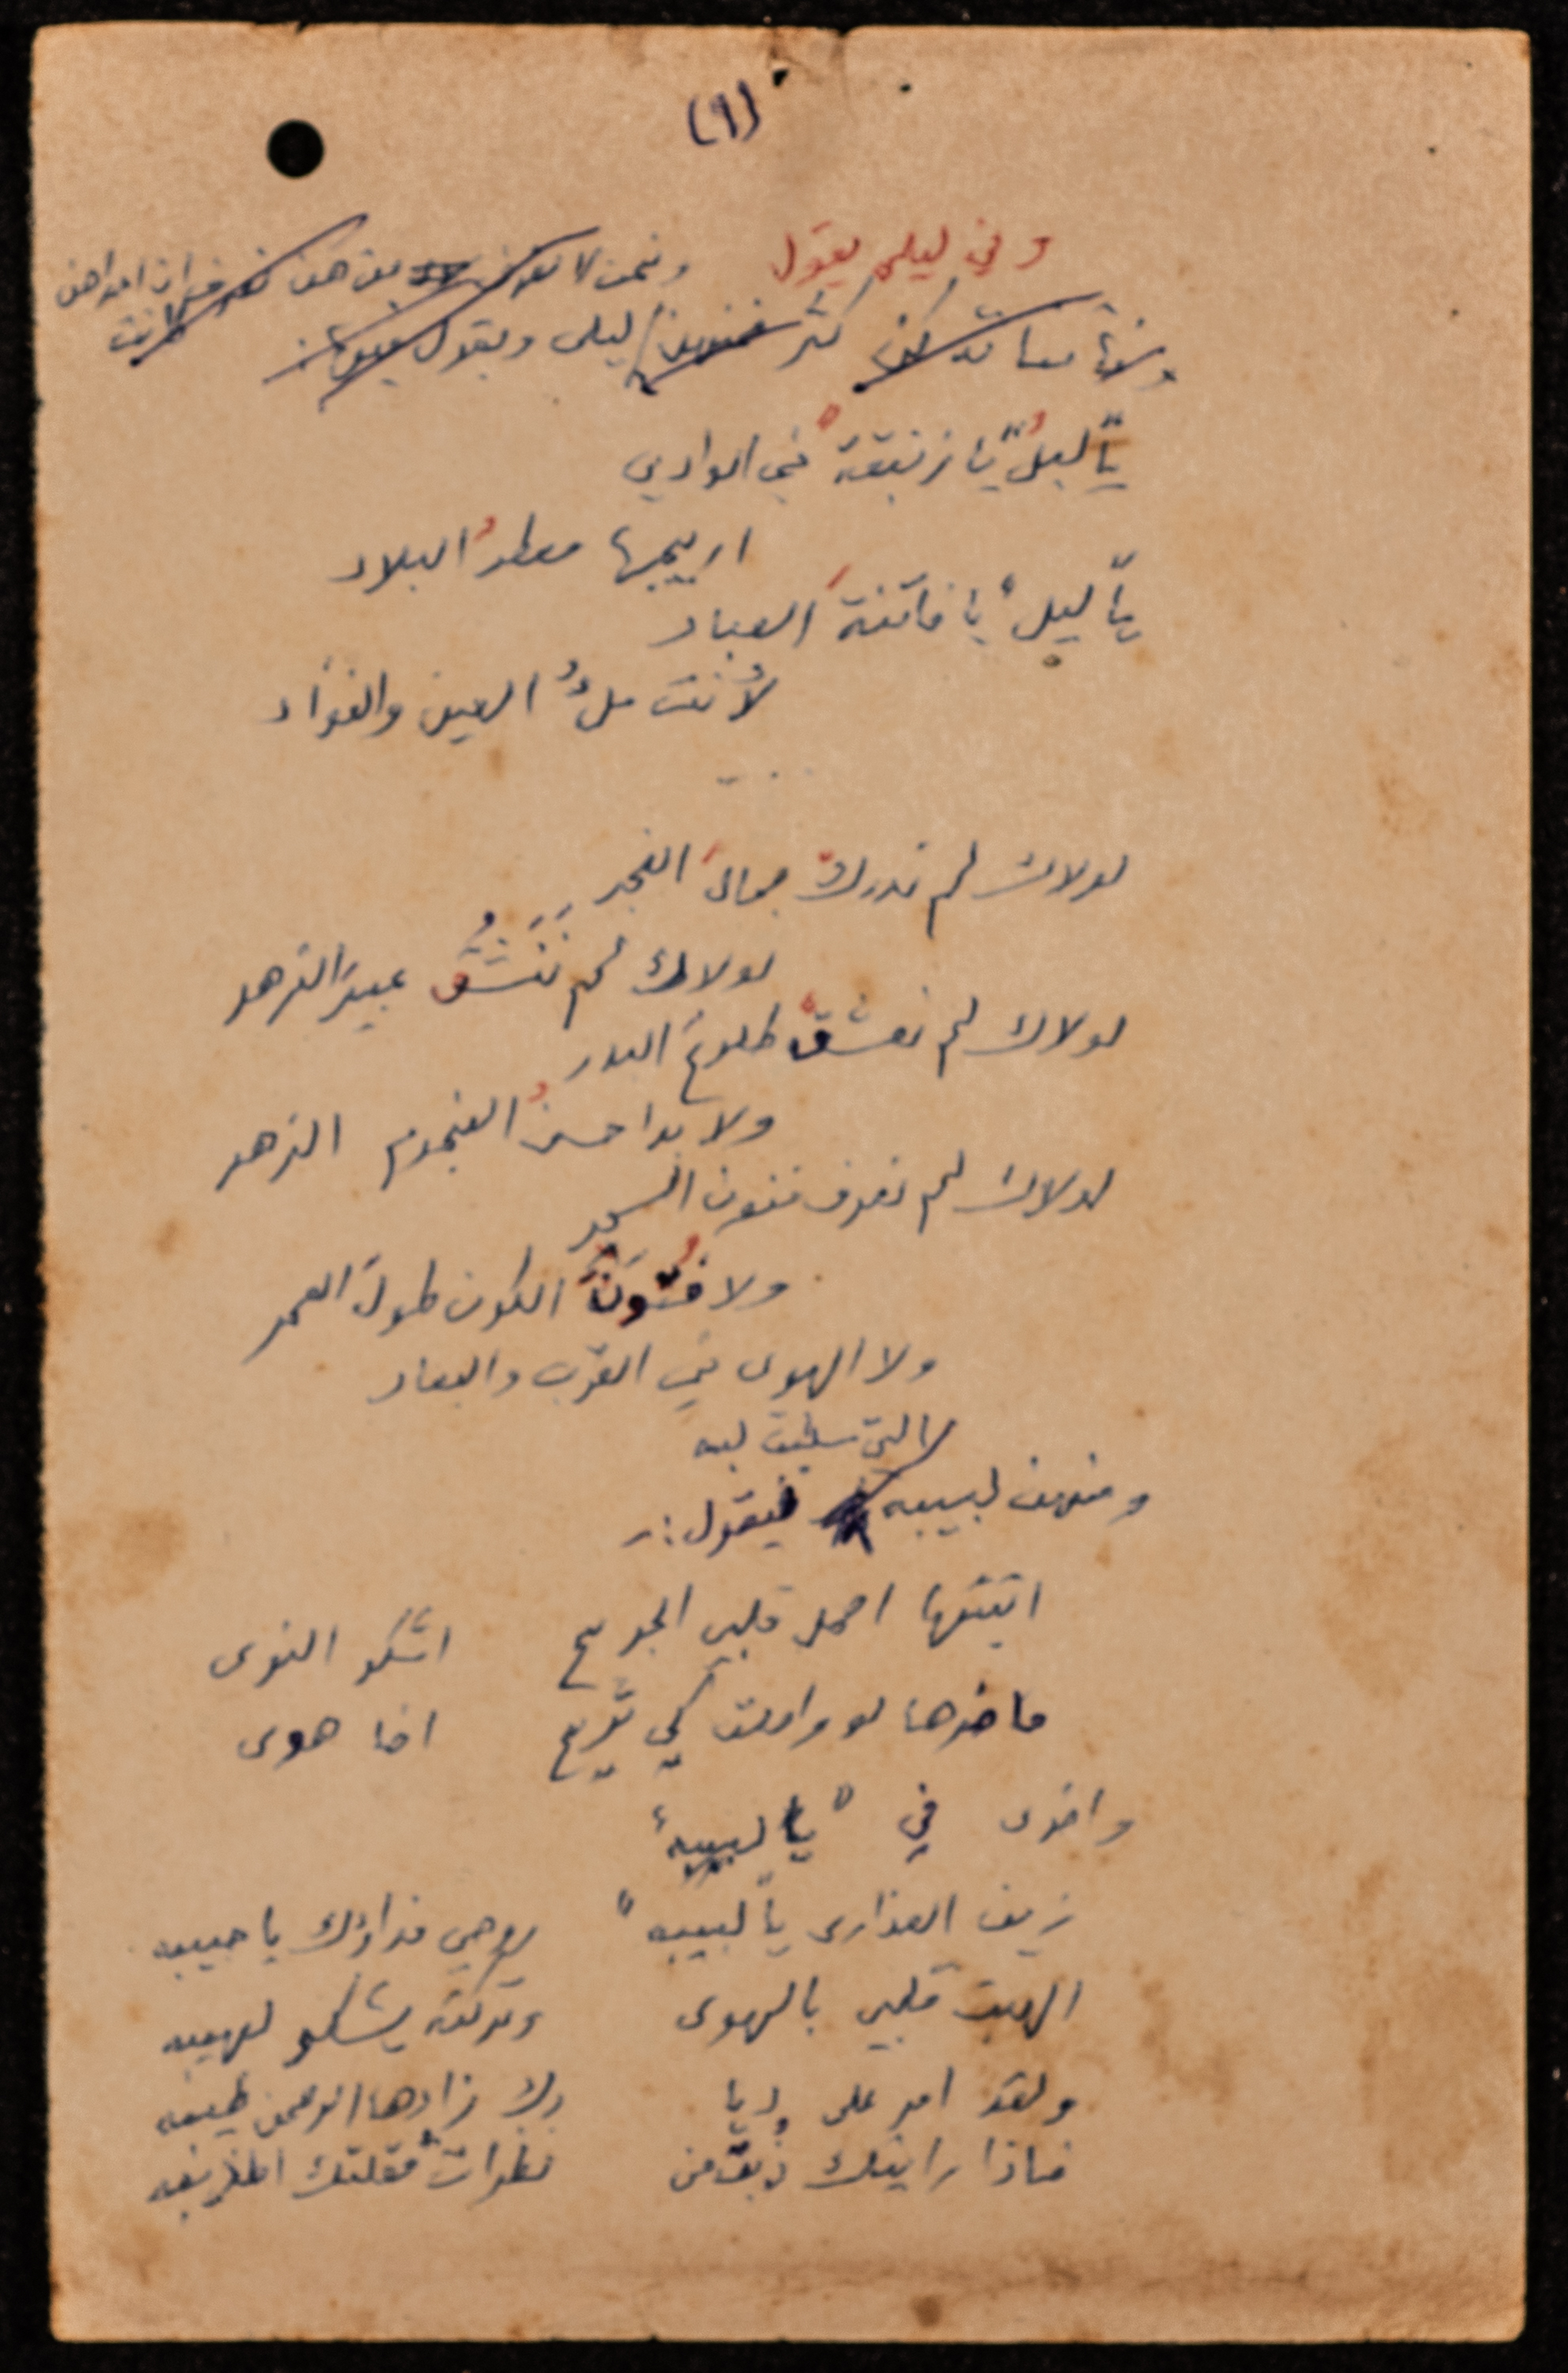 (٩)
وفي ليلى يقول
ونحن لا نعرف من هن
كثر فمنهن ليلى ويقول
يا ليلُ يا زنبقة في الوادي
اريجها معطرُ البلاد
يا ليل يا فاتنةَ العباد
لأنت ملءُ العين والفؤاد
...
لولاك لم ندرك جمالَ الفجر
لولاك لم نَنْشَق عبيرَ الزهر
لولاك لم نعشق طلوعَ البدر
ولا بدا حسنُ النجوم الزهر
لولاك لم نعرف فنون السحر
ولا فُتُونَ الكون طولَ العمر
ولا الهوى في القرب والبعاد
التي سلبت لبه
ومنهن لبيبه فيقول :-
اتيتها احمل قلبي الجريح اشكو النوى
ما ضرها لو واصلت كي تريح اخا هوى
واخرى في "يا لبيبه"
زين العذارى يا لبيبه" روحي فداؤك يا حبيبه
الهبت قلبي بالهوى وتركته يشكو لهيبه
ولقد امر على ديا رك زادها الرحمن طيبه
فاذا رايتك ذبت من نظرات مقلتك